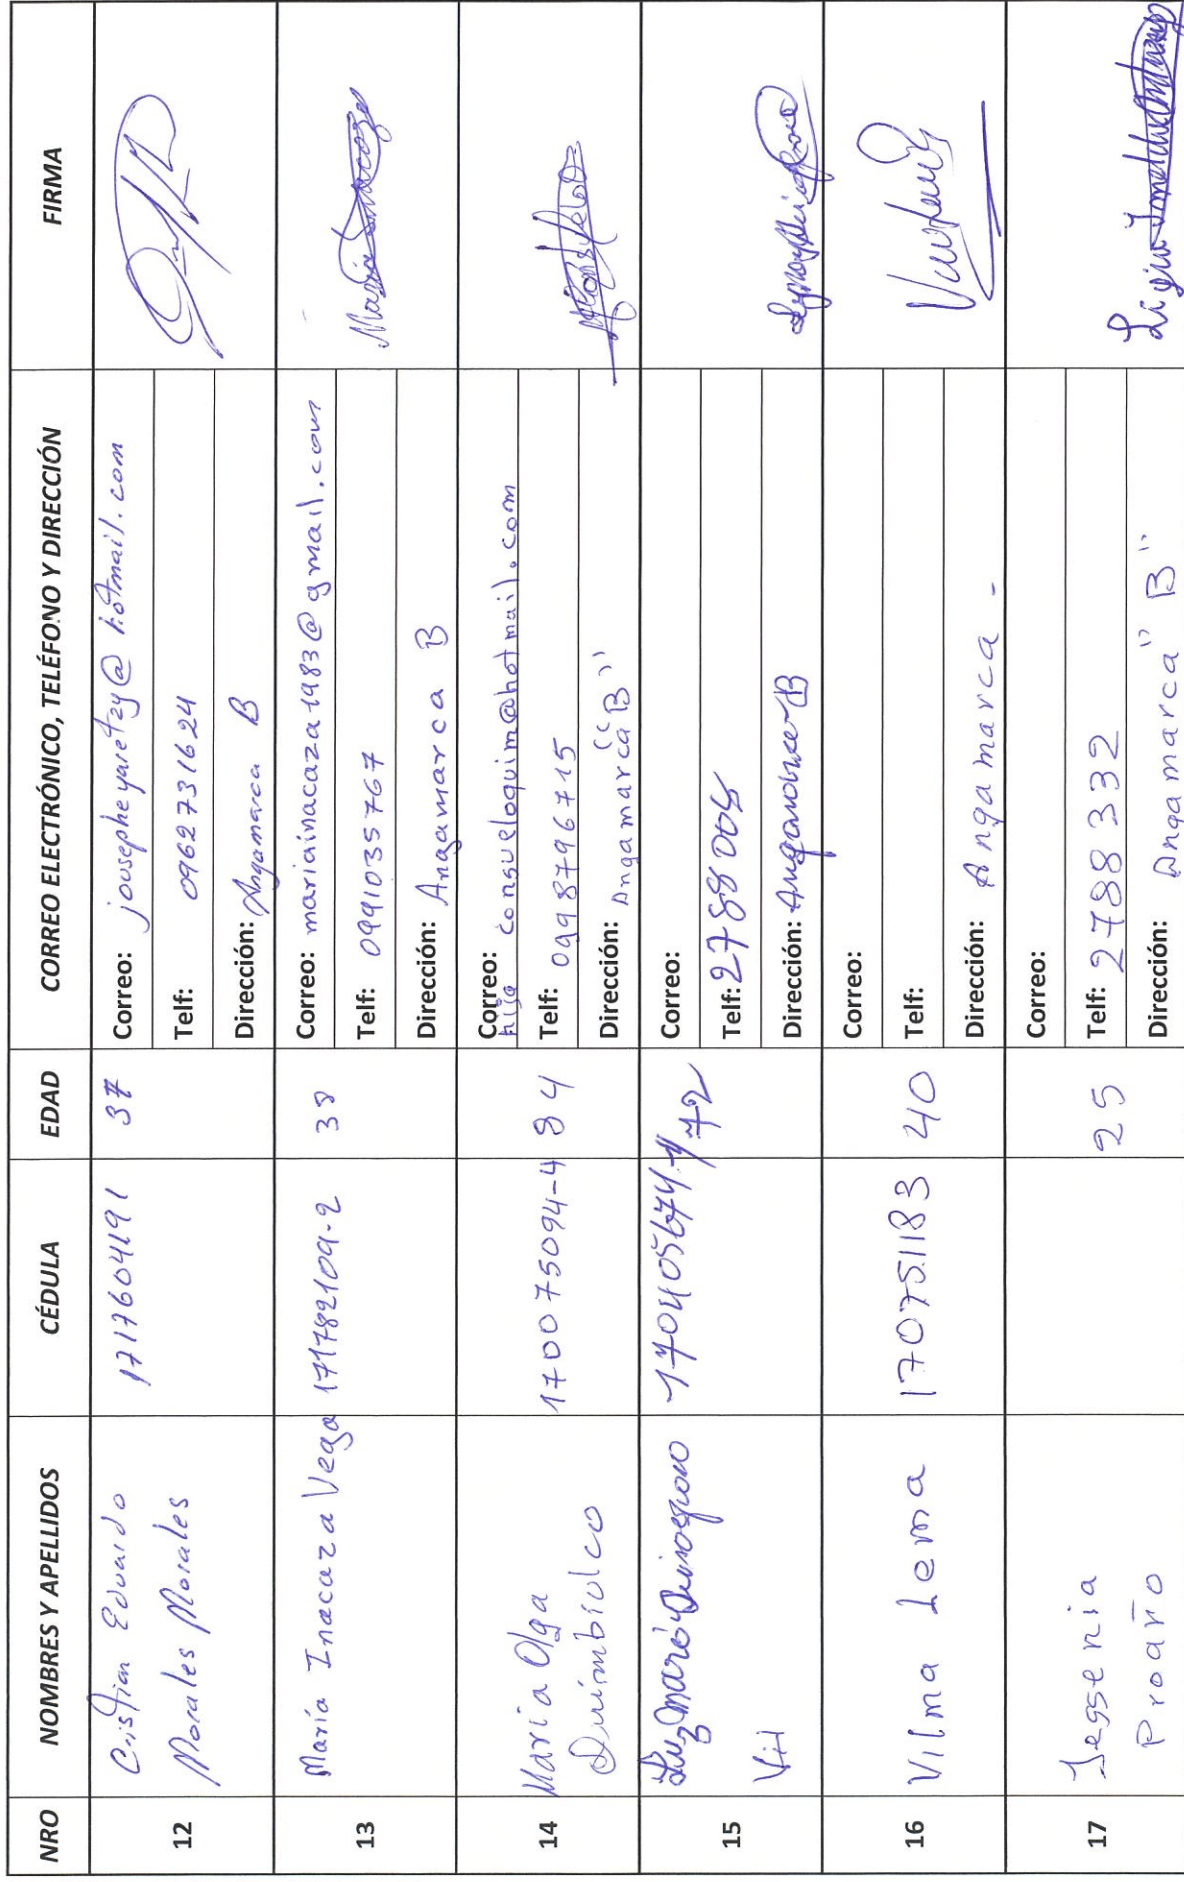 NRO NOMBRES Y APELLIDOS CÉDULA EDAD CORREO ELECTRÓNICO, TELÉFONO Y DIRECCIÓN FIRMA
12
Cristian Eduardo
Morales Morales
1717604191
37
Correo: jousepheyaretzy@hotmail.com
Telf: 0962731624
Dirección: Angamarca B
13
María Inacaza Vega
171782109-2
38
Correo: mariainacaza1983@gmail.com
Telf: 0991035767
Dirección: Anagamarca B
14
Maria Olga
Quimbiulco
170075094-4
84
Correo: consueloquim@hotmail.com
hija
Telf: 0998796715
Dirección: Angamarca "B"
15
Luz
72
Correo:
Telf: 2788004
Dirección:
16
Vilma Lema
170751183
40
Correo:
Telf:
Dirección: Angamarca -
17
Jessenia
Proaño
25
Correo:
Telf: 2788332
Dirección: Angamarca "B"